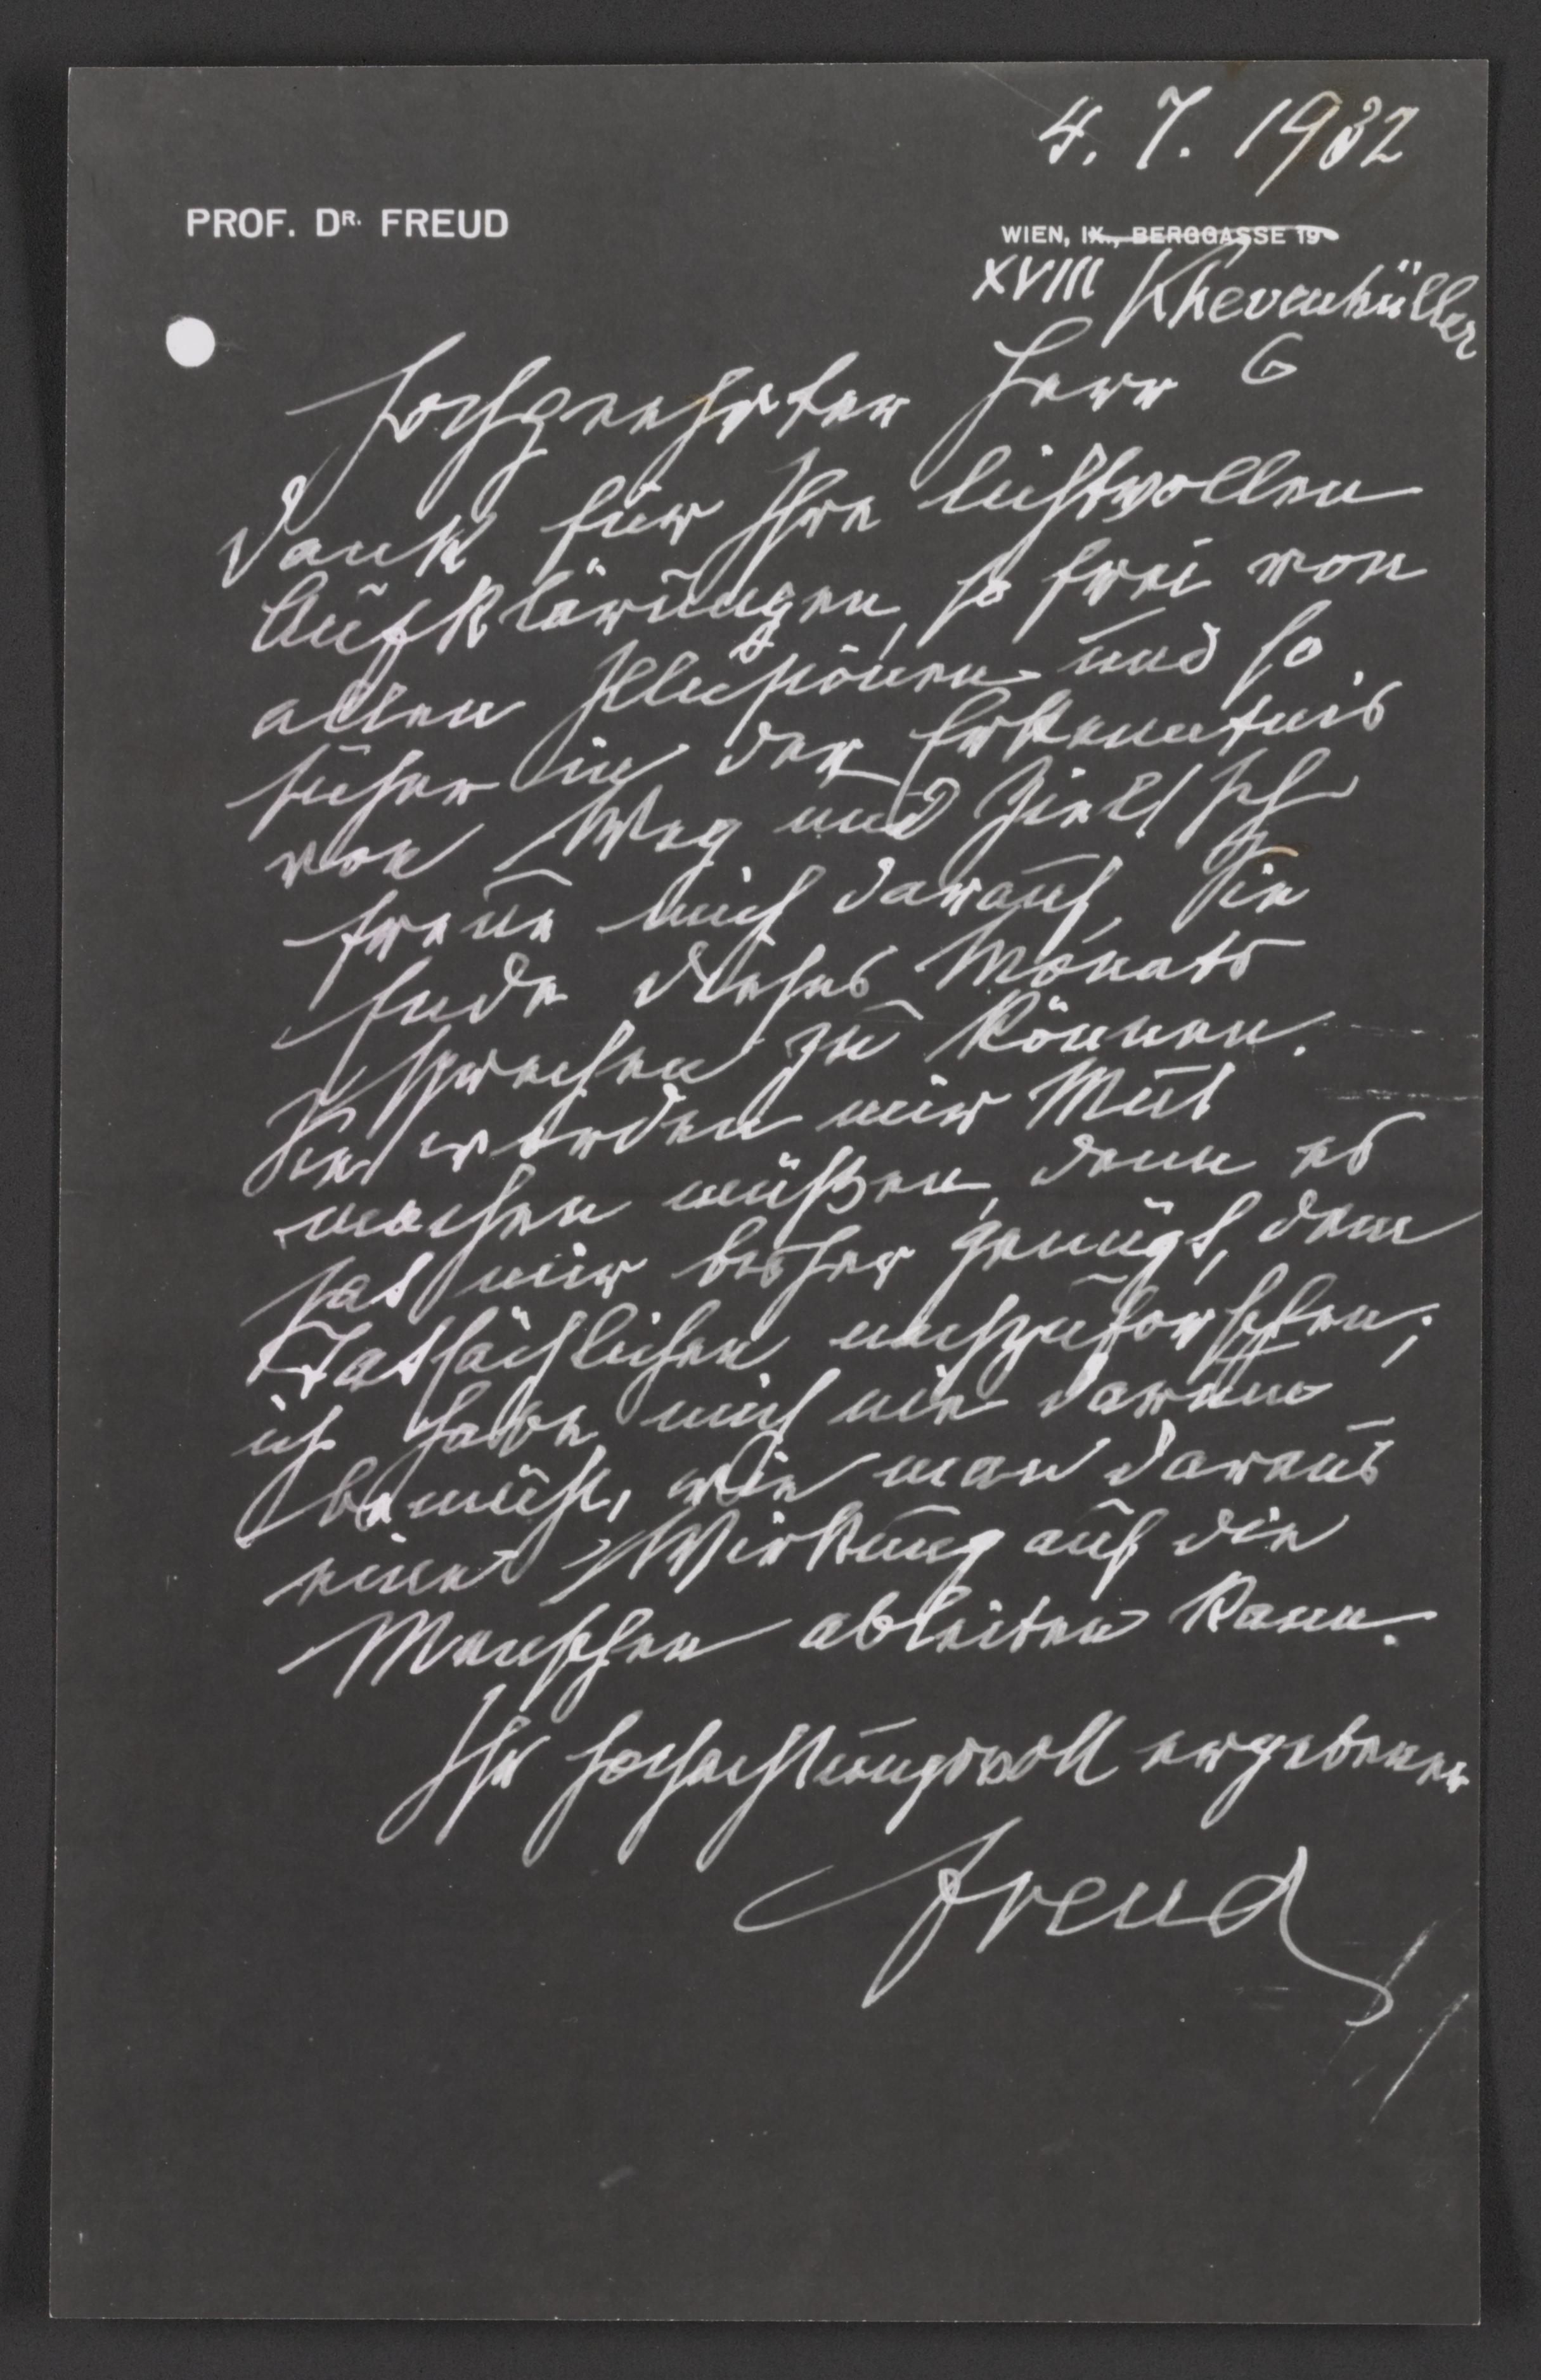 4. 7. 1932
PROF. DR. FREUD
WIEN, IX., BERGGASSE 19
XVIII Khevenhüller
Hochgeehrter Herr G
Dank für Ihre lichtvollen
Aufklärungen, so frei von
allen Illusionen und so
sicher in der Erkenntnis
von Weg und Ziel! Ich
freue mich darauf, Sie
Ende dieses Monats
sprechen zu können.
Sie werden mir Mut
machen müßen, denn es
hat mir bisher genügt, dem
Tatsächlichen nachzuforschen;
ich habe mich nie darum
bemüht, wie man daraus
eine Wirkung auf die
Menschen ableiten kann.
Ihr hochachtungsvoll ergebener
Freud